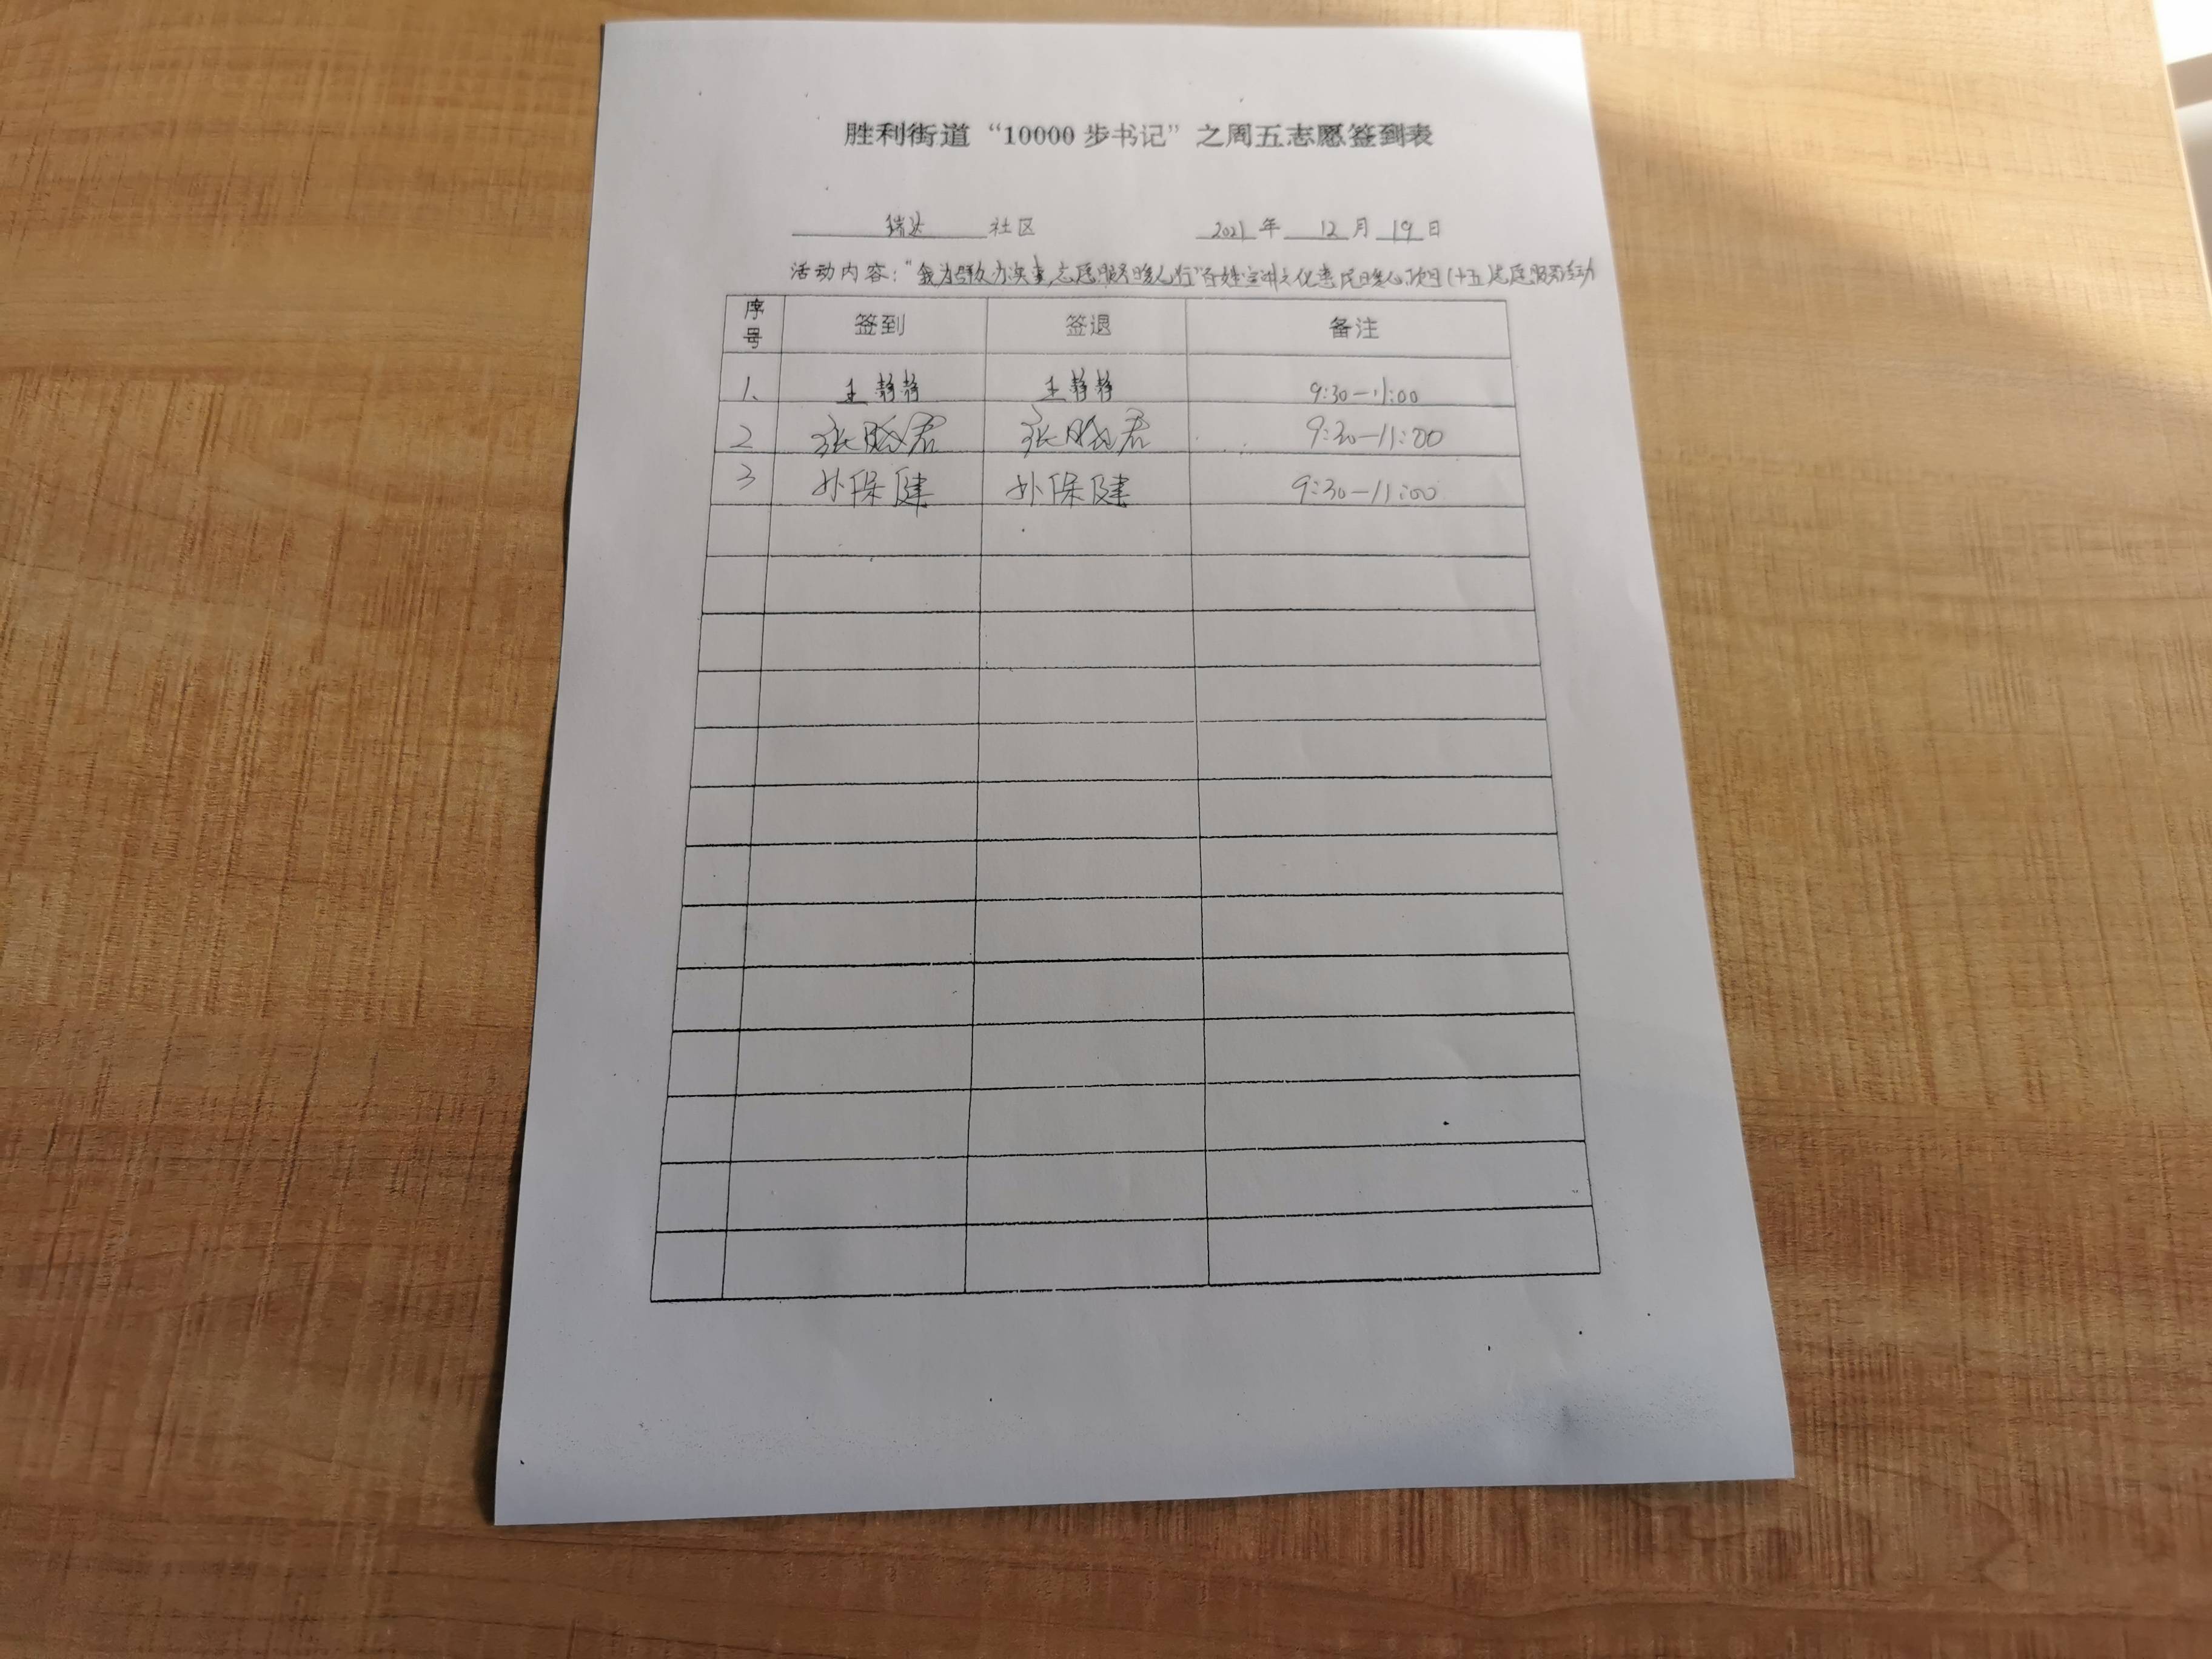 胜利街道“10000步书记”之周五志愿签到表
瑞达 社区 2021年 12月 19日
活动内容：“我为群众办实事，志愿服务暖人行”百姓宣讲文化惠民暖心项目(十五)志愿服务活动
序号 签到 签退 备注
1、 王静静 王静静 9:30-11:00
2 张晓君 张晓君 9:30-11:00
3 孙保健 孙保健 9:30-11:00